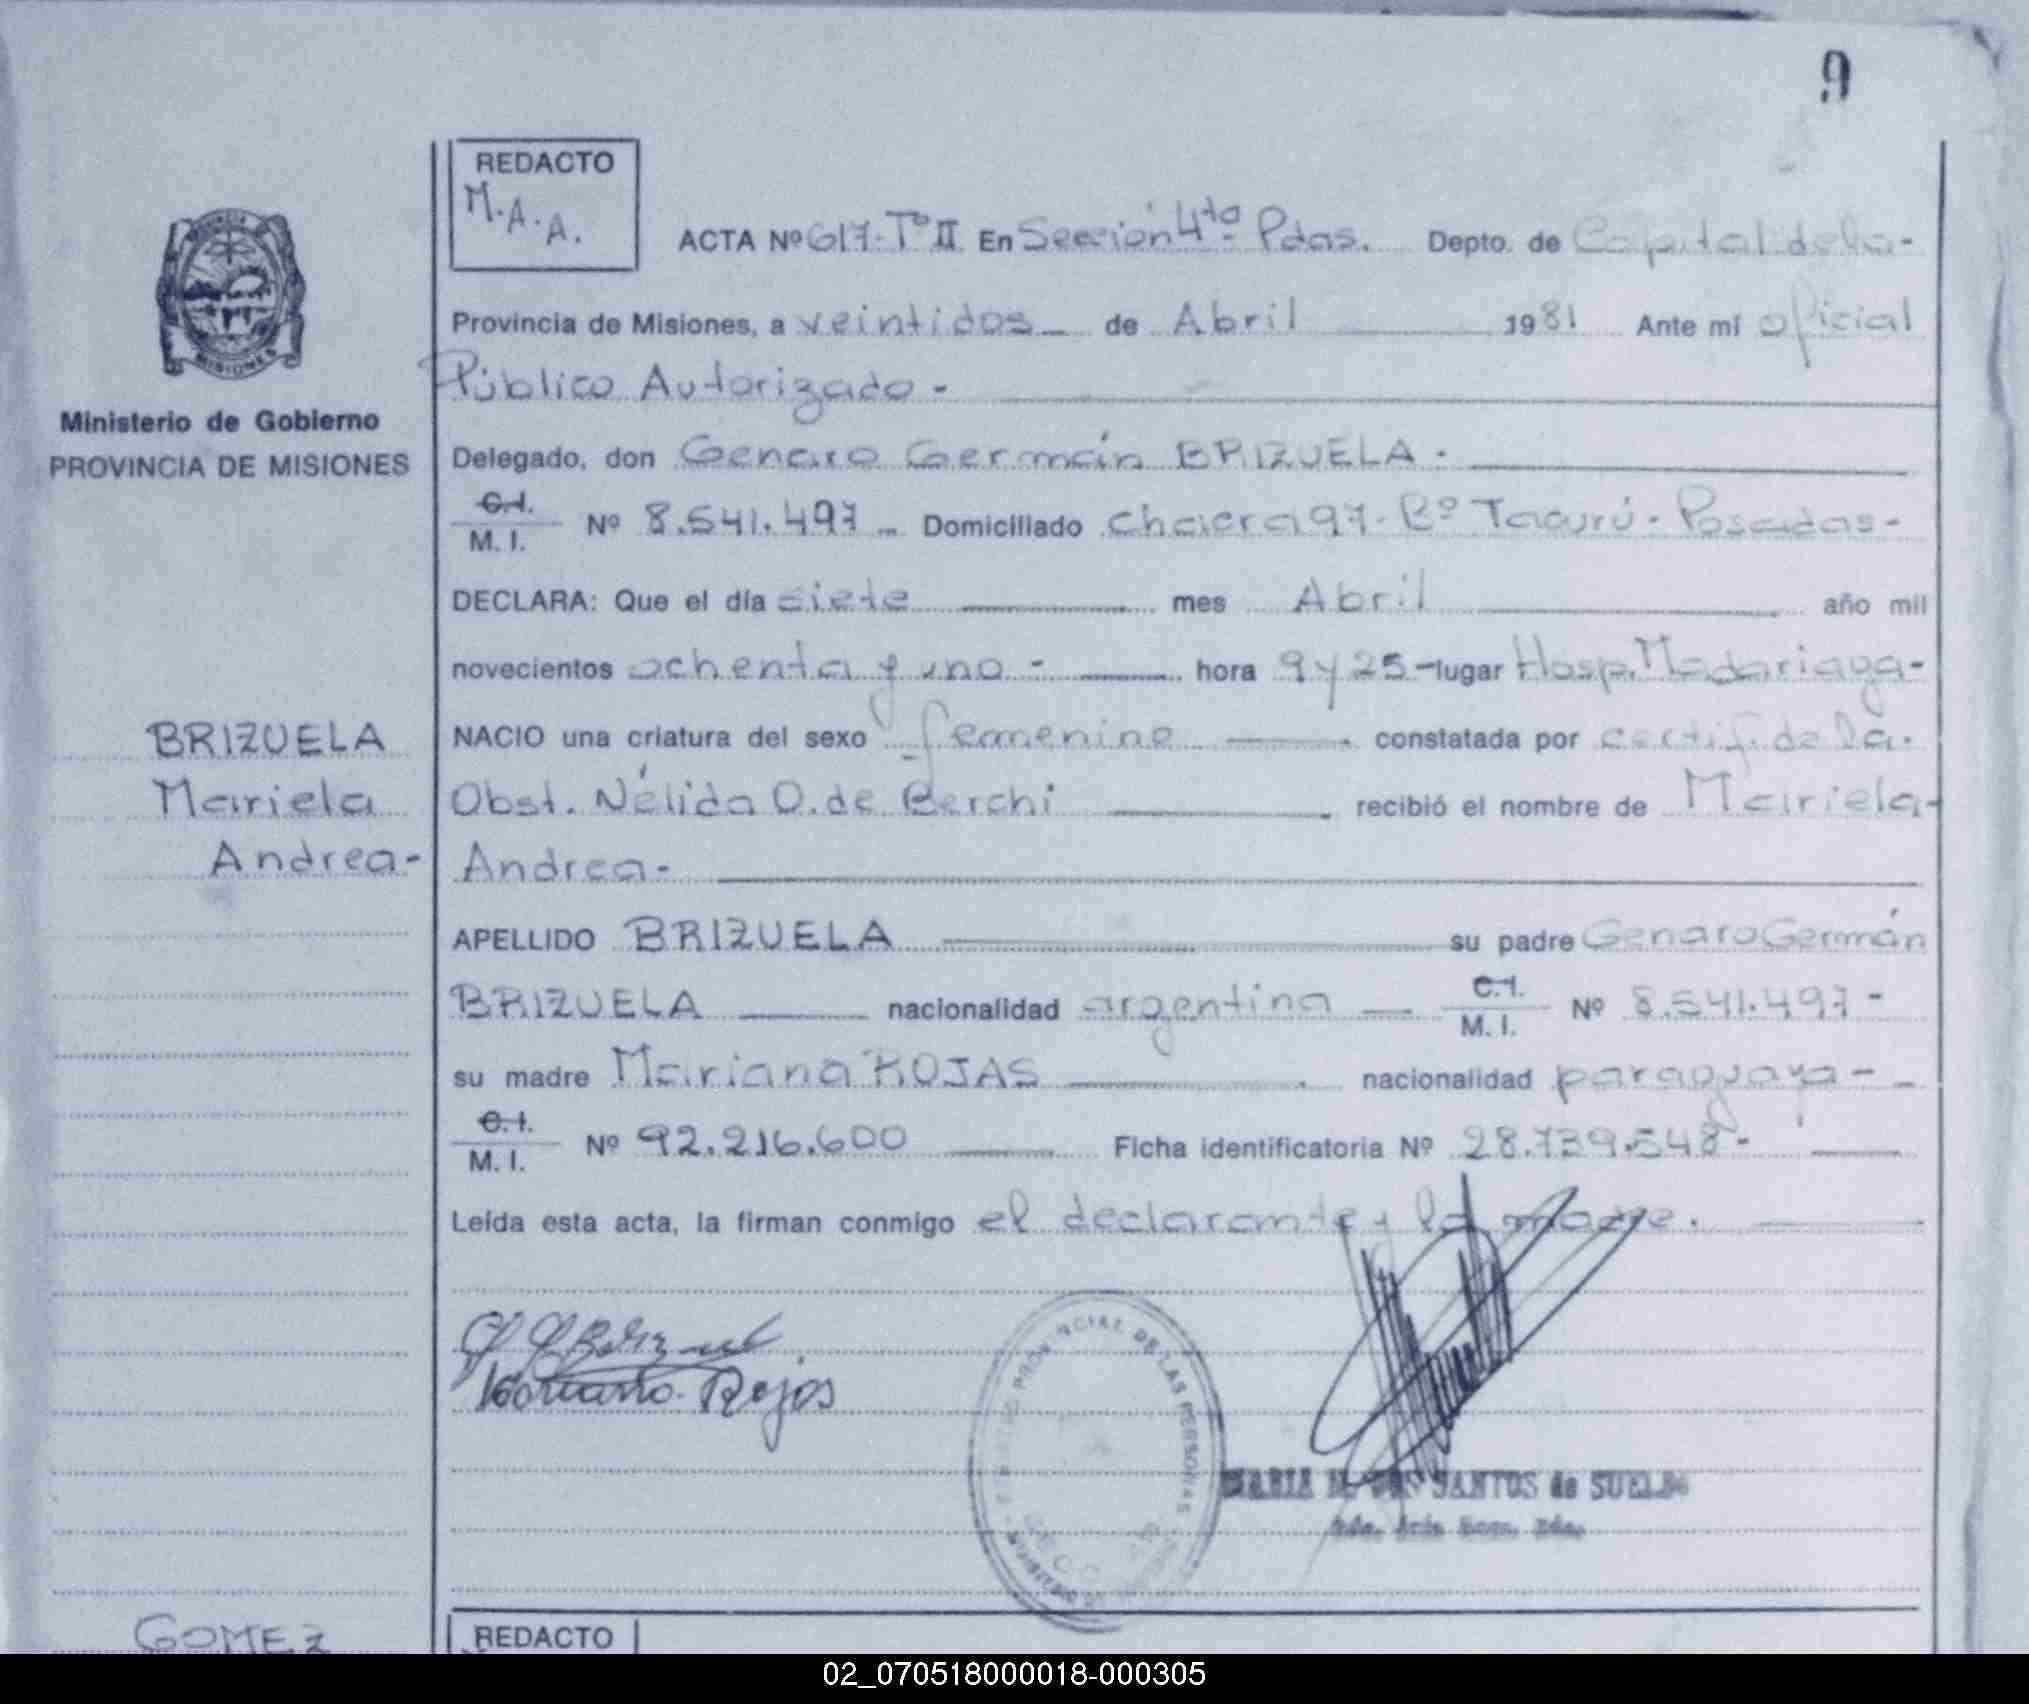 9
REDACTO
M.A.A.
ACTA Nº 617-Tº II En Sección 4ta Pdas. Depto. de Capital de la-
Provincia de Misiones, a veintidos de Abril 1981 Ante mí oficial
Público Autorizado-
Ministerio de Gobierno
PROVINCIA DE MISIONES
Delegado, don Genaro Germán BRIZUELA.
C.I. M.I. Nº 8.541.497 Domiciliado chacra 97-Bº Tacurú-Posadas-
DECLARA: Que el día siete mes Abril año mil
novecientos ochenta y uno- hora 9 y 25- lugar Hosp. Madariaga-
NACIO una criatura del sexo femenino constatada por certif. de la.
BRIZUELA
Mariela
Andrea-
Obst. Nélida O. de Berchi recibió el nombre de Mariela-
Andrea-
APELLIDO BRIZUELA su padre Genaro Germán
BRIZUELA nacionalidad argentina C.I. M.I. Nº 8.541.497-
su madre Mariana ROJAS nacionalidad paraguaya-
C.I. M.I. Nº 92.216.600 Ficha identificatoria Nº 28.739.548-
Leída esta acta, la firman conmigo el declarante y la madre.
Rojas
PROVINCIAL DE LAS PERSONAS
MARIA DOS SANTOS de SUELDO
GOMEZ
REDACTO
02_070518000018-000305